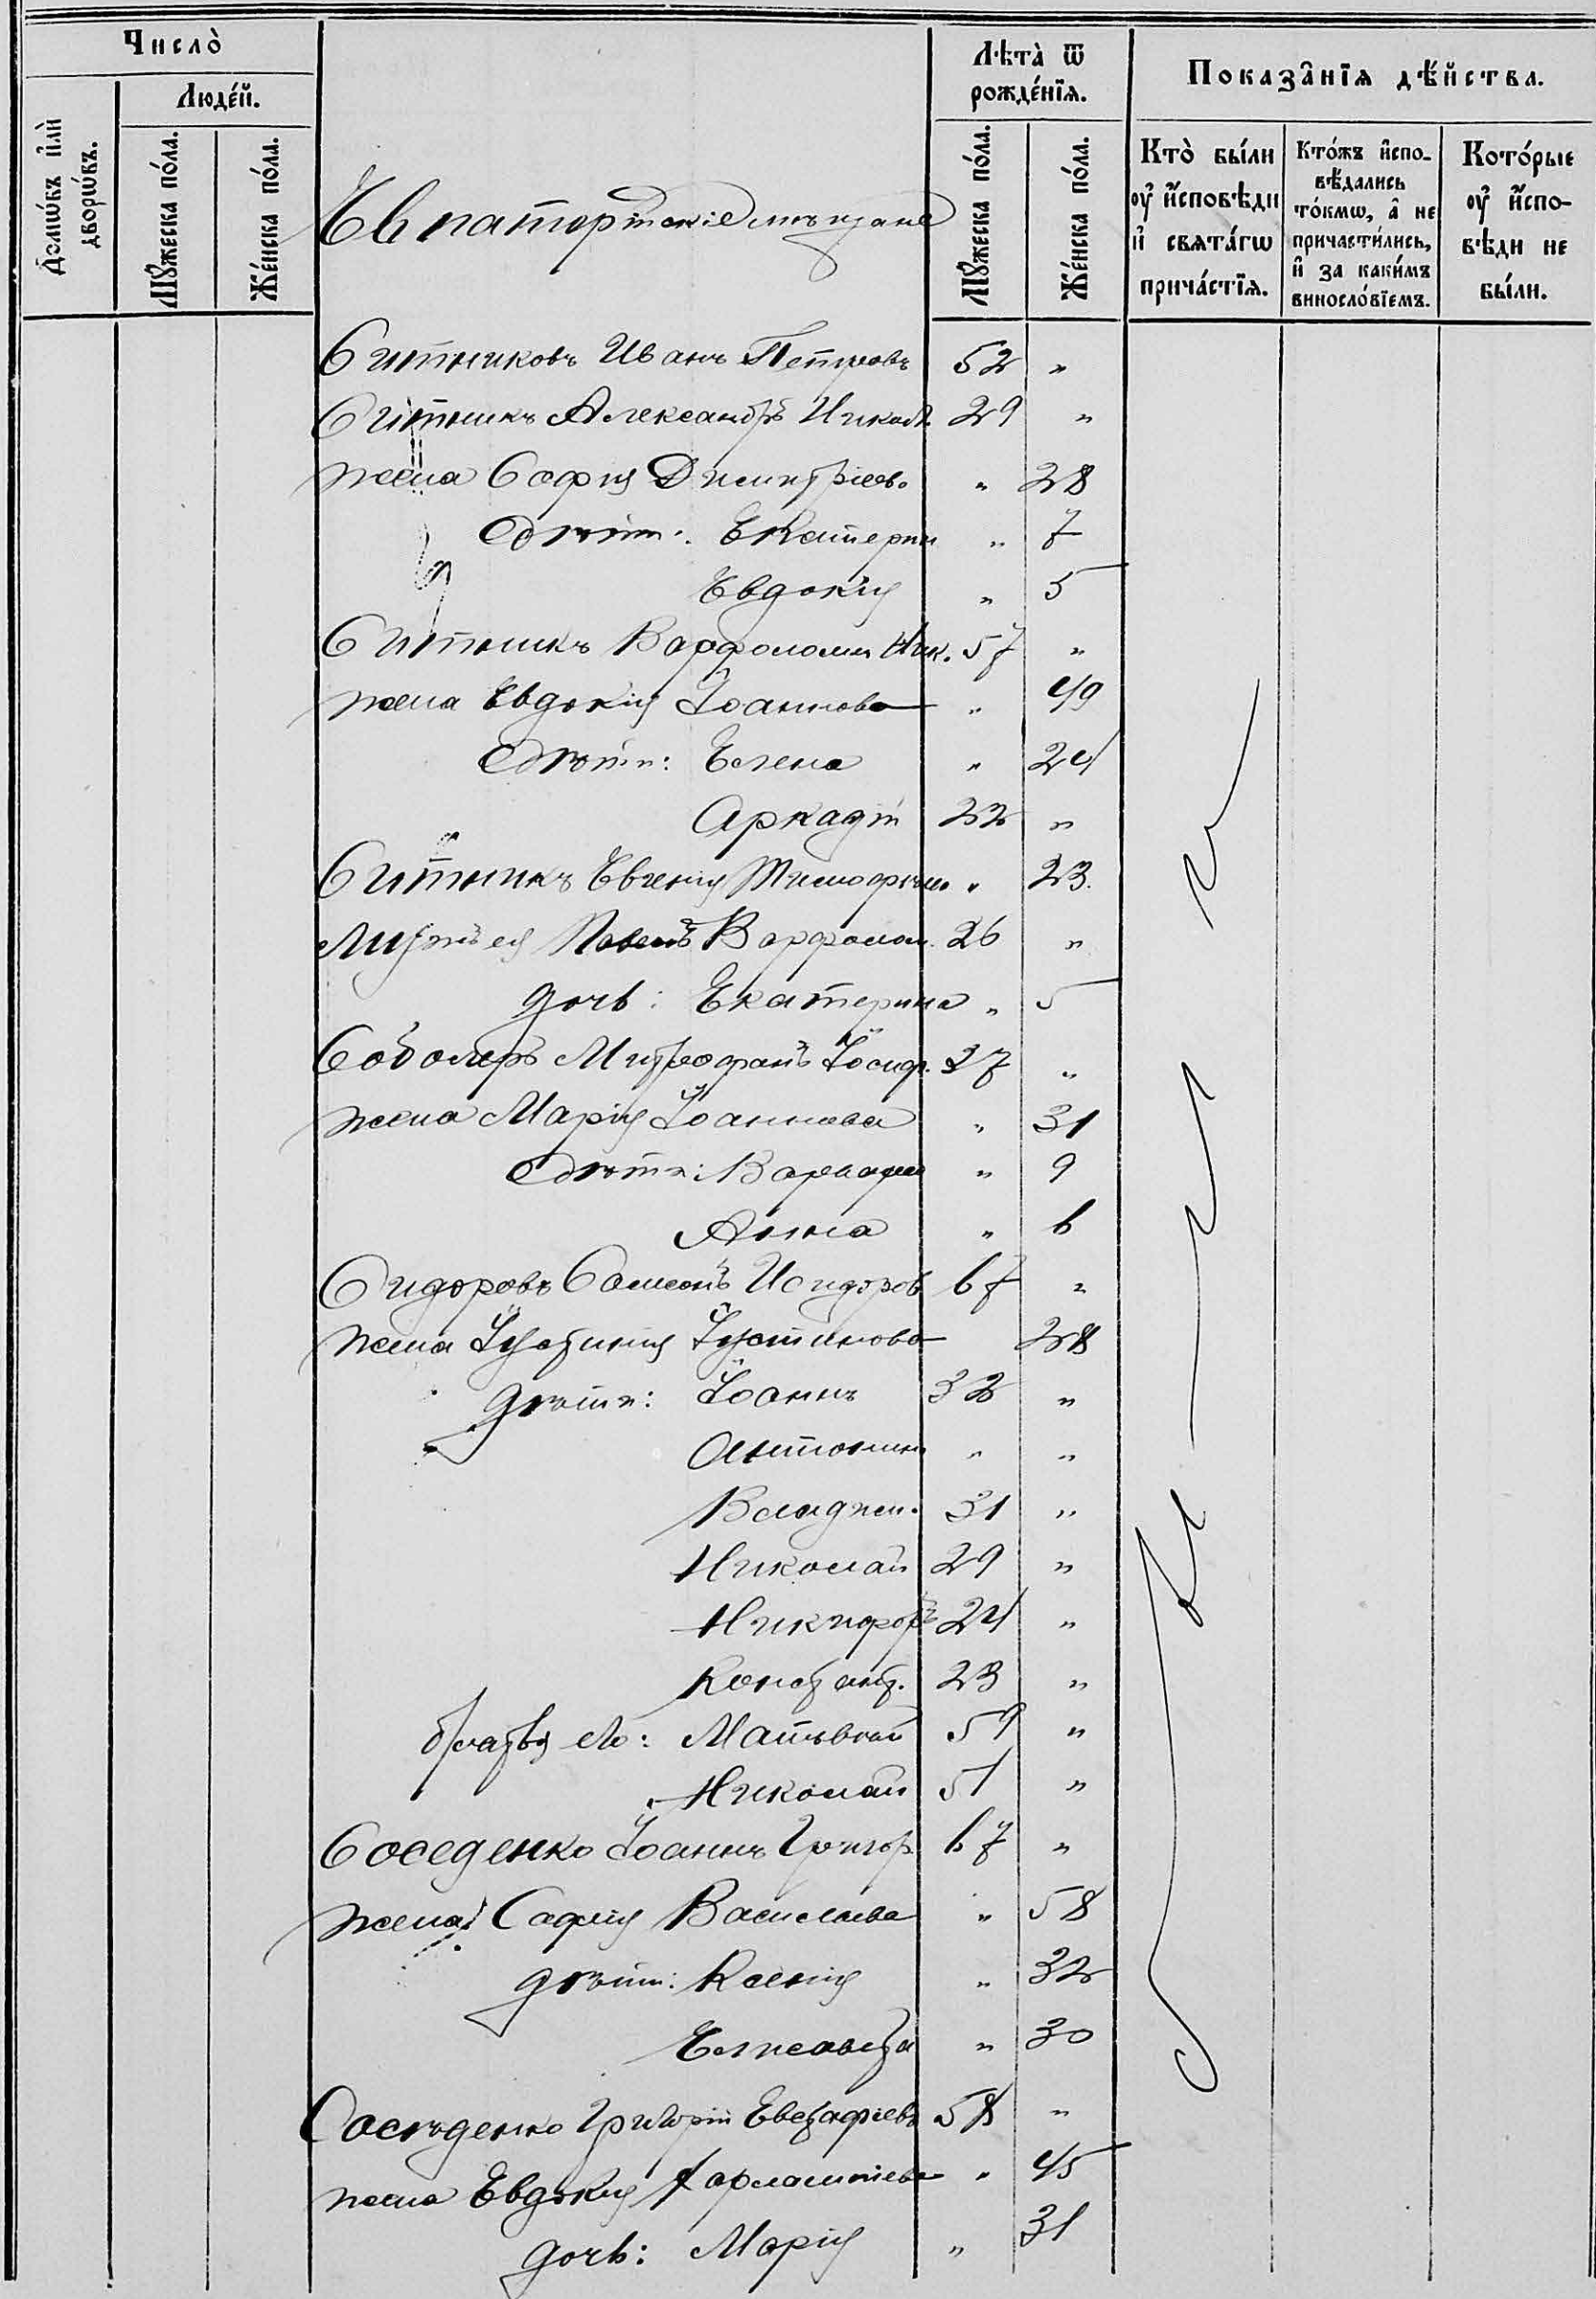 Число̀
Люде́й.
Домѡ́въ и҆лѝ дворѡ́въ.
Мꙋ́жеска по́ла.
Же́нска по́ла.
Лѣта̀ ѿ рожде́нїѧ.
Мꙋ́жеска по́ла.
Же́нска по́ла.
Показа̑нїѧ дѣ́йства.
Кто̀ бы́ли оу҆ и҆́сповѣди и҆ свѧта́гѡ прича́стїѧ.
Кто́жъ и҆спо-вѣ́дались то́кмѡ, а҆ не причасти́лись, и҆ за каки́мъ винословїемъ.
Кото́рые оу҆ и҆́спо-вѣди не бы́ли.
Евпаторійскіе мѣщане
Ситниковъ Иванъ Петровъ 52 "
Ситникъ Александръ Никол. 29 "
жена Софія Димитріев. " 28
дѣти: Екатерин " 7
Евдокія " 5
Ситникъ Варфоломей Ник. 57 "
жена Евдокія Іоаннова " 49
дѣти: Елена " 24
Аркадій 22 "
Ситникъ Евгенія Тимофѣев. " 23.
Мужъ ея Павелъ Варфолом. 26 "
дочь: Екатерина " 5
Соболеръ Митрофанъ Іосиф. 37 "
жена Марія Іоаннова " 31
дѣти: Варвара " 9
Анна " 6
Сидоровъ Самсонъ Исидоров 67 "
жена Іустинія Іустинова 28
дѣти: Іоаннъ 32 "
Антонин " "
Владим. 31 "
Николай 29 "
Никифоръ 24 "
Констант. 23 "
братья его: Матѳвѣй 59 "
Николай 51 "
Соседенко Іоаннъ Григор 67 "
жена Софія Васильева " 58
дѣти: Ксенія " 32
Елисавета " 30
Сосѣденко Григорій Евстафіевъ 58 "
жена Евдокія Харлампіева " 45
дочь: Марія " 31